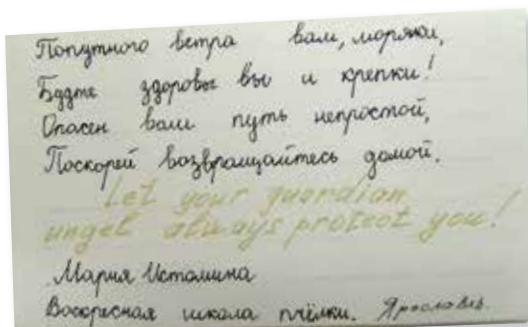 Попутного ветра вам, моряки,
Будте здоровы вы и крепки!
Опасен ваш путь непростой,
Поскорей возвращайтесь домой.
Let your guardian
angel always protect you!
Мария Истомина
Воскресная школа пчёлки. Ярославль.